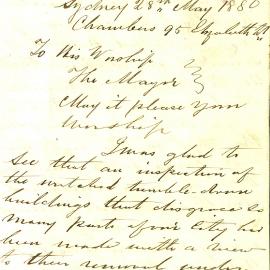 Sydney 28th May 1880
Chambers 95 Elizabeth St
To His Worship
The Mayor
May it please your
Worship
I was glad to
see that an inspection of
the wretched tumble-down
buildings that disgrace so
many parts of our City has
been made with a view
to their removal under